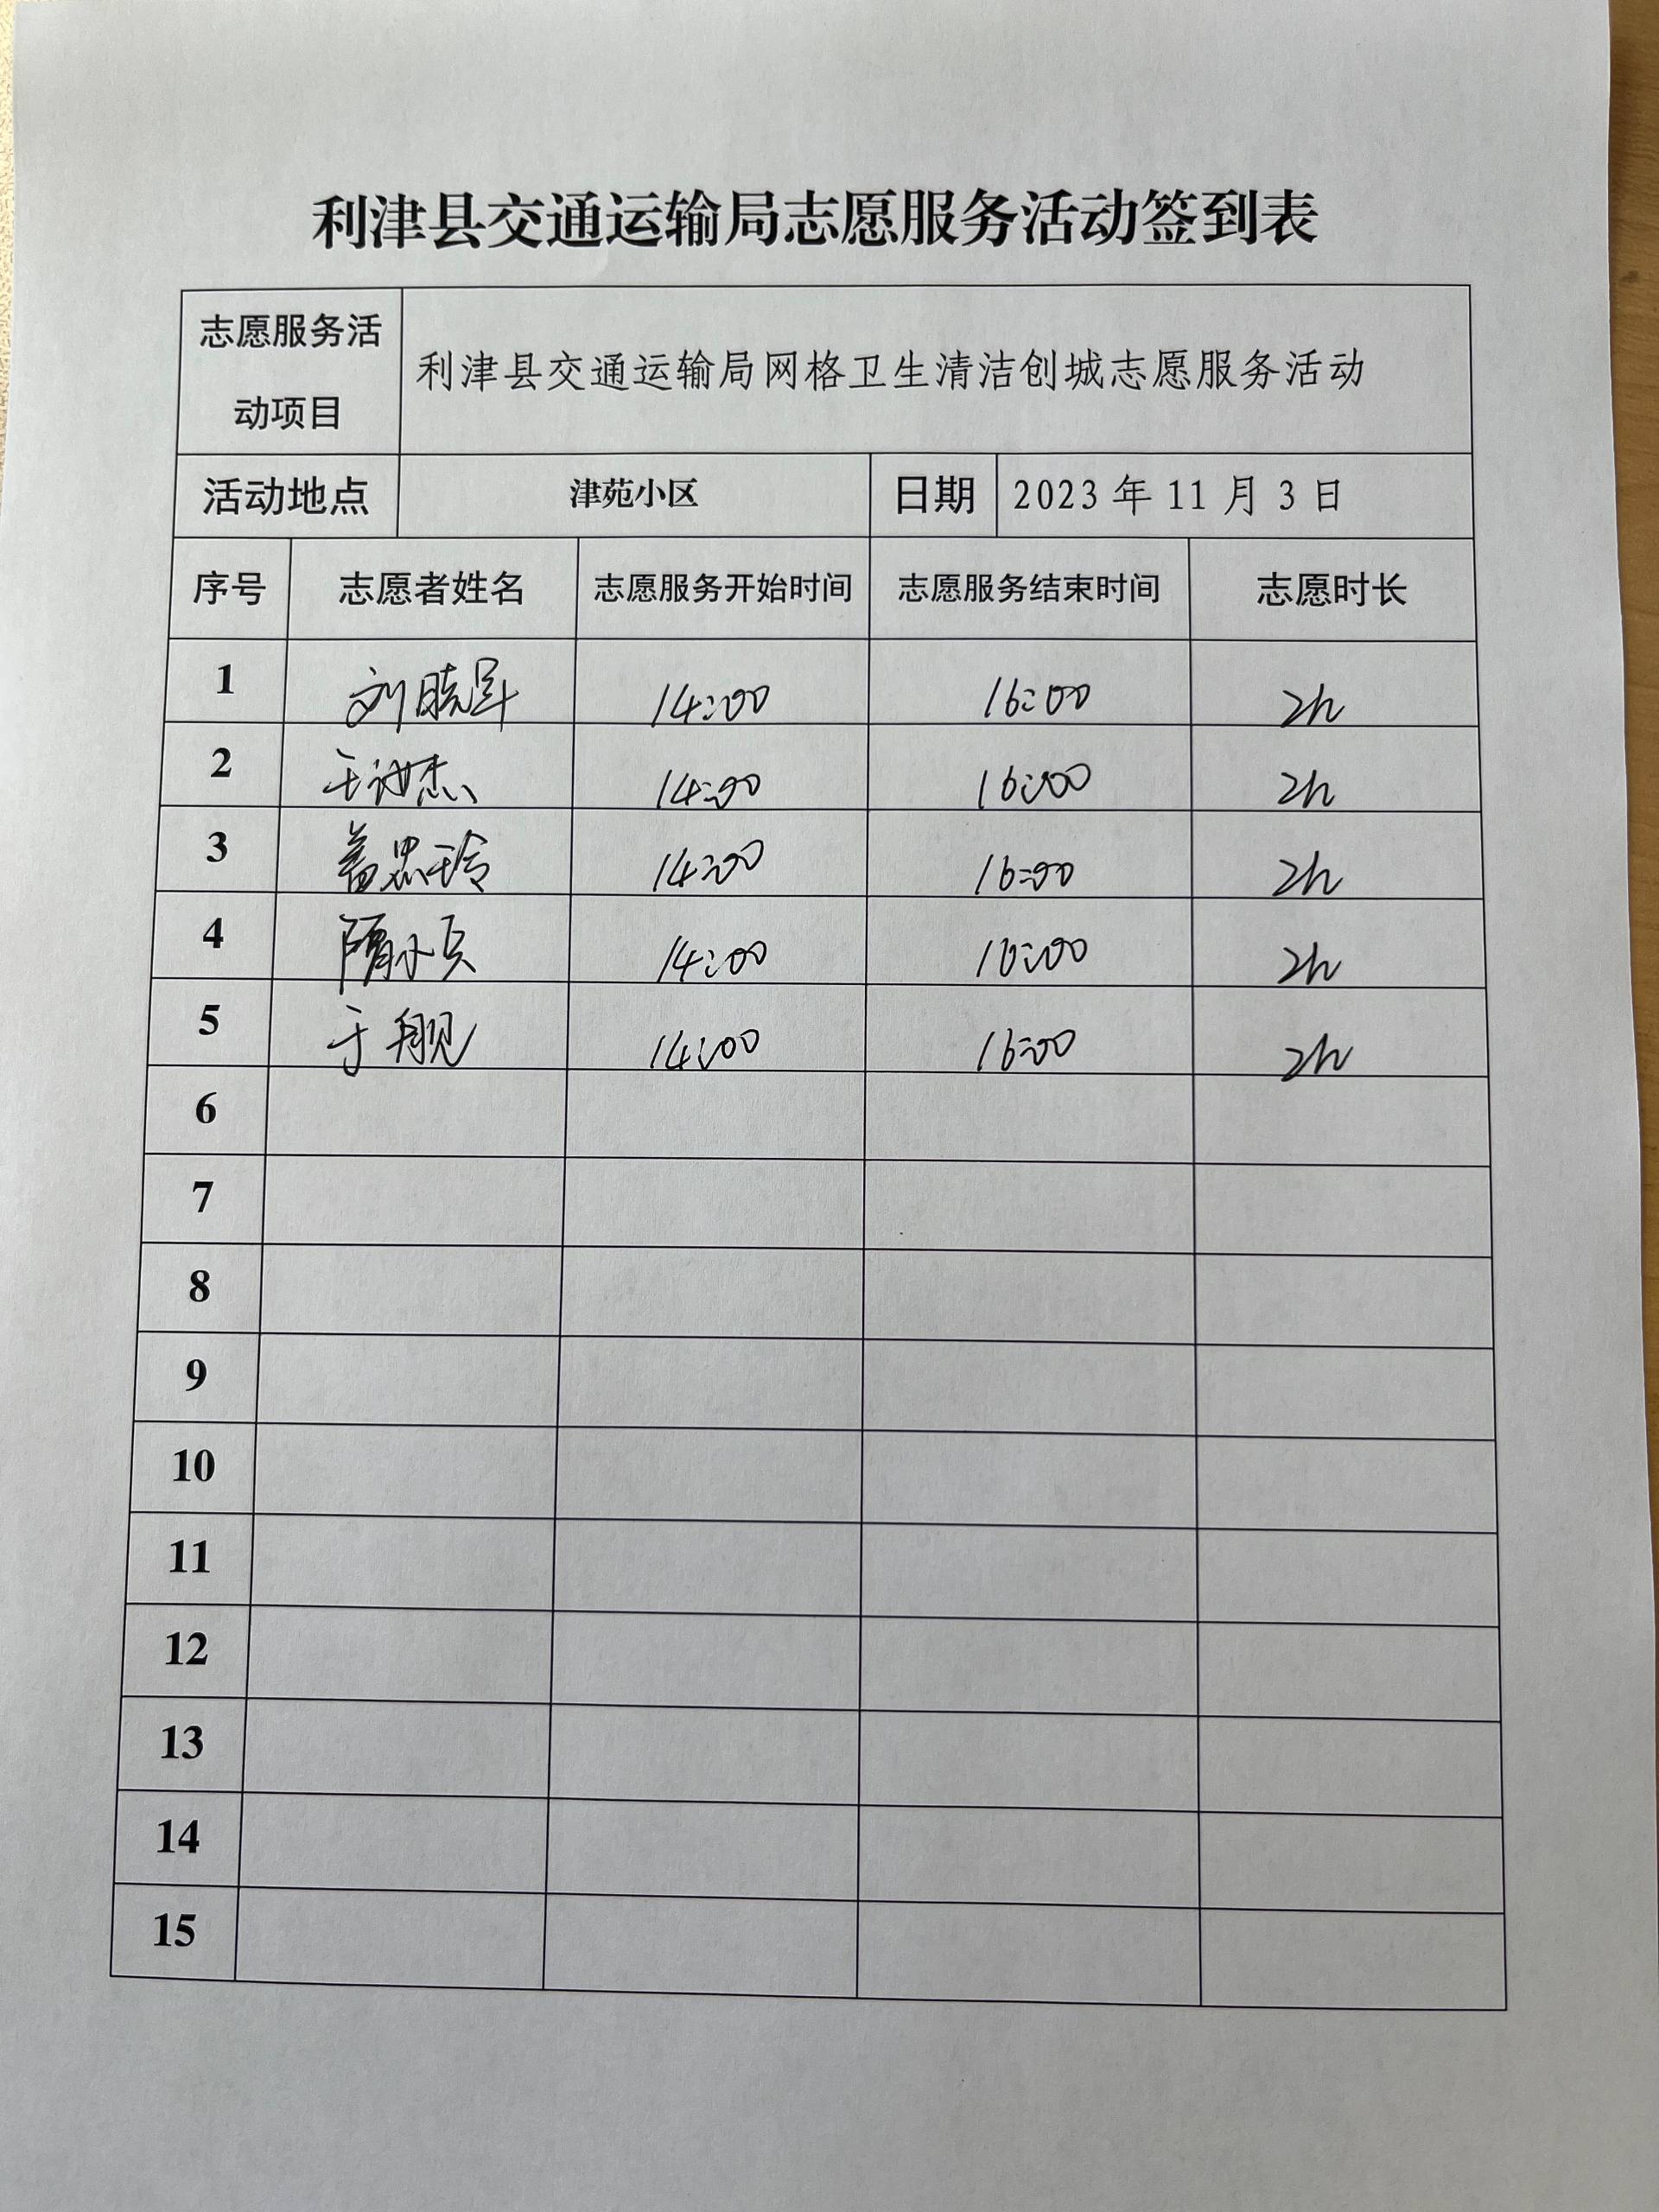 利津县交通运输局志愿服务活动签到表
志愿服务活
动项目
利津县交通运输局网格卫生清洁创城志愿服务活动
活动地点 津苑小区 日期 2023 年 11 月 3 日
序号 志愿者姓名 志愿服务开始时间 志愿服务结束时间 志愿时长
1 刘晓军 14:00 16:00 2h
2 14:00 16:00 2h
3 14:00 16:00 2h
4 14:00 16:00 2h
5 14:00 16:00 2h
6
7
8
9
10
11
12
13
14
15